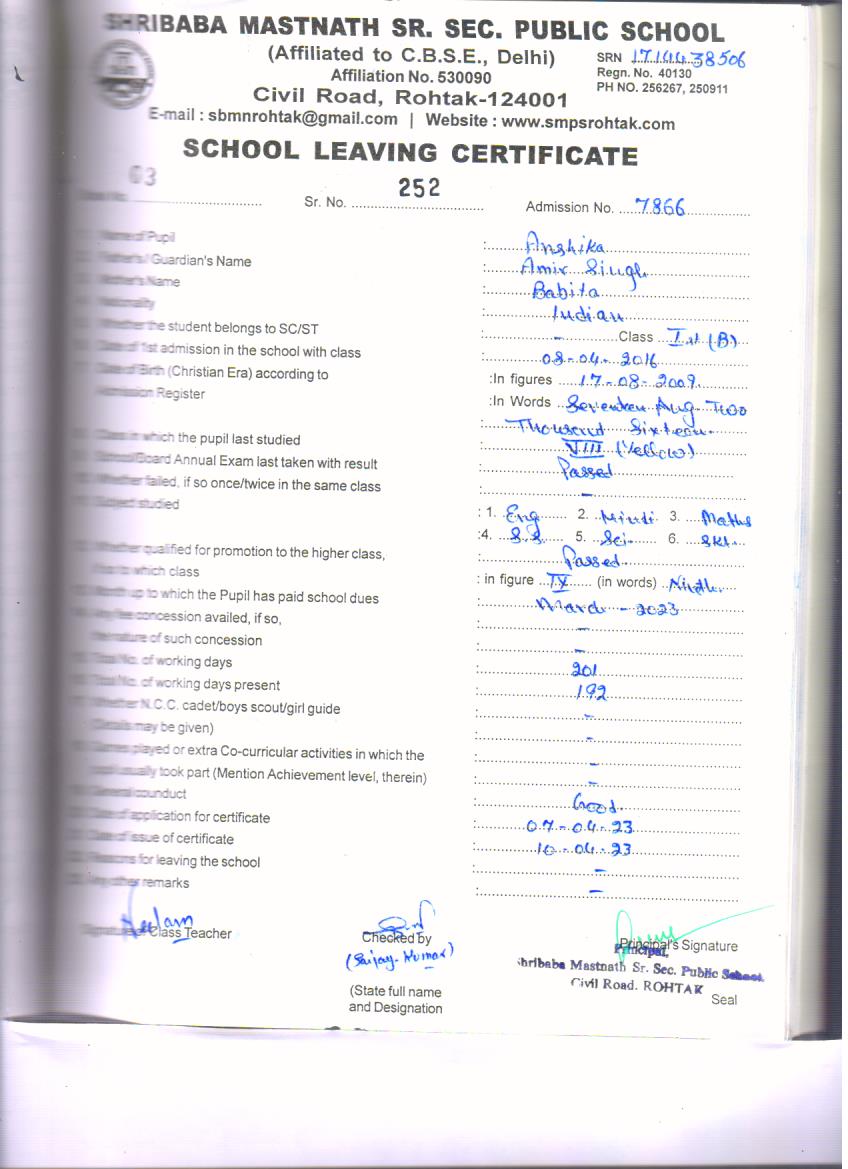 SHRIBABA MASTNATH SR. SEC. PUBLIC SCHOOL
(Affiliated to C.B.S.E., Delhi) SRN 1714438506
Affiliation No. 530090 Regn. No. 40130
Civil Road, Rohtak-124001 PH NO. 256267, 250911
E-mail : sbmnrohtak@gmail.com | Website : www.smpsrohtak.com
SCHOOL LEAVING CERTIFICATE
03 Sr. No. 252 Admission No. 7866
Name of Pupil : Anshika
Father's / Guardian's Name : Amir Singh
Mother's Name : Babita
Nationality : Indian
Whether the student belongs to SC/ST : - Class (B)
Date of 1st admission in the school with class : 08-04-2016
Date of Birth (Christian Era) according to :In figures 17-08-2009
Admission Register :In Words Seventeen Aug Two
: Thousand Sixteen
Class in which the pupil last studied : VIII (Yellow)
School/Board Annual Exam last taken with result : Passed
Whether failed, if so once/twice in the same class : -
Subject studied : 1. Eng 2. Hindi 3. Maths
:4. S.S. 5. Sci. 6. Skt.
Whether qualified for promotion to the higher class, : Passed
if so to which class : in figure IX (in words) Ninth
Month up to which the Pupil has paid school dues : March - 2023
Any fee concession availed, if so, : -
the nature of such concession : -
Total No. of working days : 201
Total No. of working days present : 192
Whether N.C.C. cadet/boys scout/girl guide : -
(Details may be given) : -
Games played or extra Co-curricular activities in which the : -
pupil usually took part (Mention Achievement level, therein) : -
General counduct : Good.
Date of application for certificate : 07-04-23
Date of issue of certificate : 10-04-23
Reasons for leaving the school : -
Any other remarks : -
Neelam
Signature of Class Teacher Checked by Principal's Signature
(Sanjay Kumar) Principal,
Shribaba Mastnath Sr. Sec. Public School.
(State full name Civil Road. ROHTAK
and Designation Seal